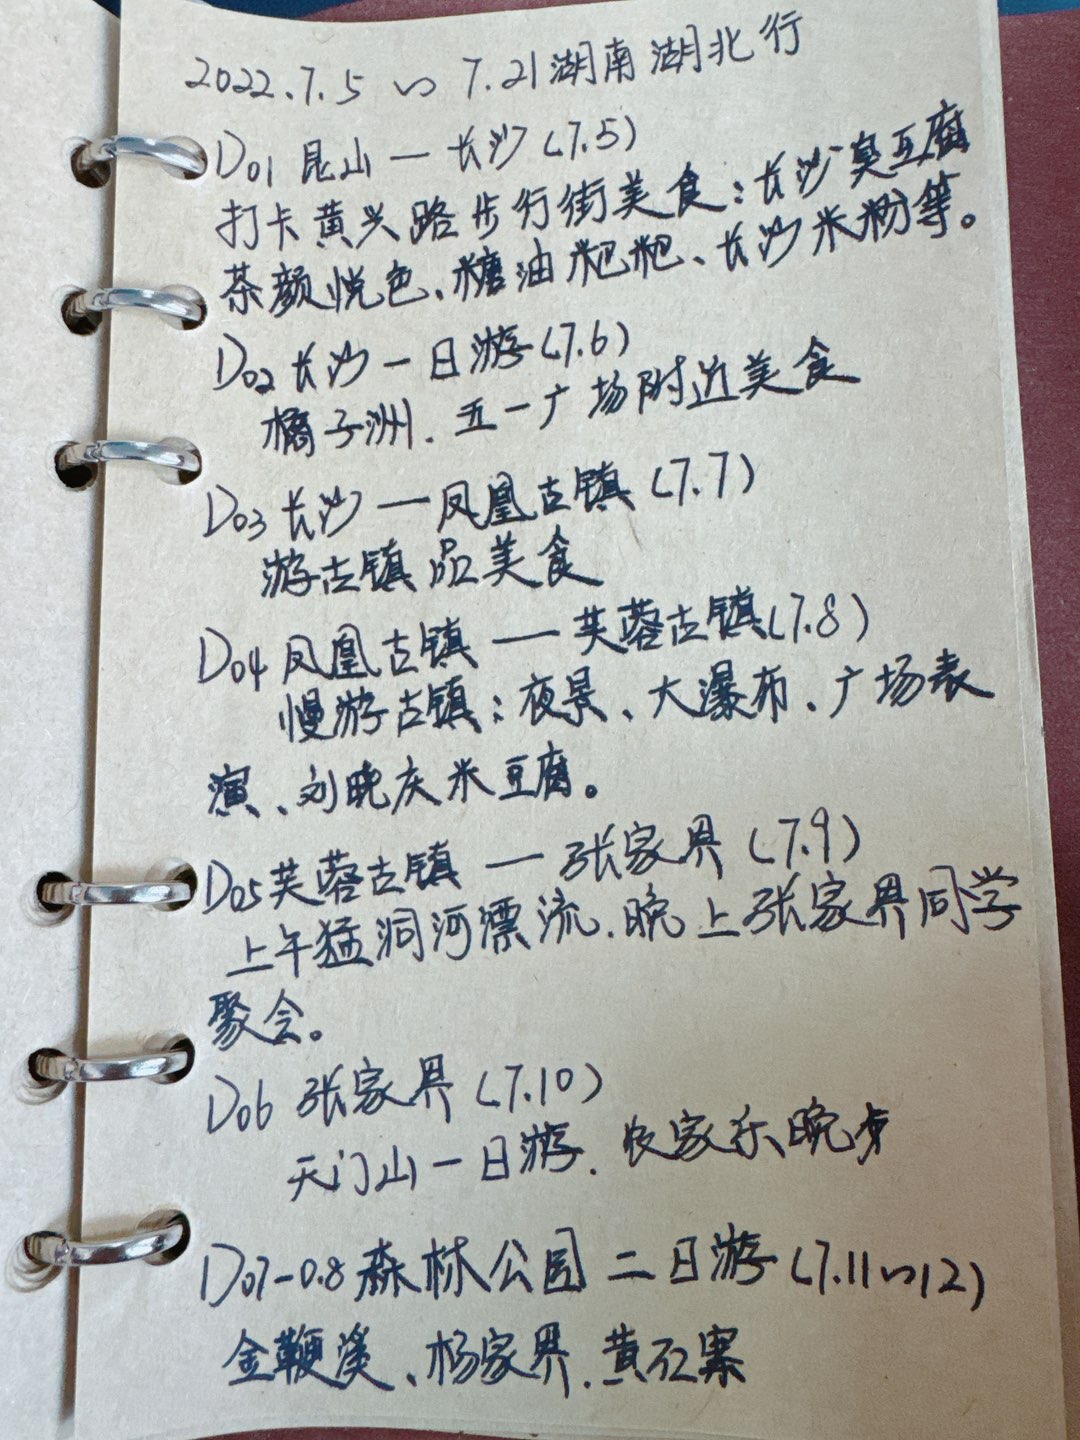 2022.7.5 ~ 7.21湖南湖北行
D01 昆山 — 长沙 (7.5)
打卡黄兴路步行街美食：长沙臭豆腐
茶颜悦色、糖油粑粑、长沙米粉等。
D02 长沙一日游 (7.6)
橘子洲．五一广场附近美食
D03 长沙 — 凤凰古镇 (7.7)
游古镇品美食
D04 凤凰古镇 — 芙蓉古镇 (7.8)
慢游古镇：夜景、大瀑布、广场表
演、刘晓庆米豆腐。
D05 芙蓉古镇 — 张家界 (7.9)
上午猛洞河漂流．晚上张家界同学
聚会。
D06 张家界 (7.10)
天门山一日游．农家乐晚步
D07-0.8 森林公园二日游 (7.11~12)
金鞭溪、杨家界．黄石寨